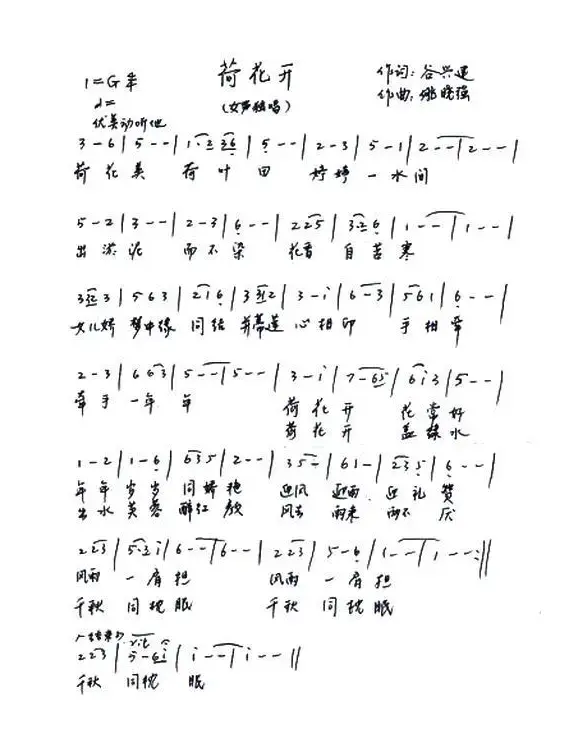 荷花开
(女声独唱)
作词:谷兴
作曲:姚晓强
1=G
优美动听地
3 - 6 | 5 - - | 1 · 2 3 6 | 5 - - | 2 - 3 | 5 - 1 | 2 - - | 2 - - |
荷花美 荷叶田 婷婷一水间
5 - 2 | 3 - - | 2 - 3 | 6 - - | 2 2 5 | 3 · 2 6 | 1 - - | 1 - - |
出淤泥 而不染 花香自苦寒
3 3 2 3 | 5 6 3 | 2 1 6 | 3 3 1 2 | 3 - i | 6 - 3 | 5 6 1 | 6 - - |
女儿娇 梦中缘 同结并蒂莲 心相印 手相牵
2 - 3 | 6 6 3 | 5 - - | 5 - - | 3 - i | 7 - 6 5 | 6 i 3 | 5 - - |
牵手一年年 荷花开 花常好
荷花开 盖绿水
1 - 2 | 1 - 6 | 6 3 5 | 2 - - | 3 5 - | 6 1 - | 2 3 5 | 6 - - |
年年岁岁同娇艳 迎风 迎雨 迎礼赞
出水芙蓉醉红颜 风去 雨来 两不厌
2 2 3 | 5 · 2 i | 6 - - | 6 - - | 2 2 3 | 5 - 6 | 1 - - | 1 - - :||
风雨一肩担 风雨一肩担
千秋同枕眠 千秋同枕眠
结束句 rit
2 2 3 | 5 - 6 i | i - - | i - - ||
千秋同枕眠